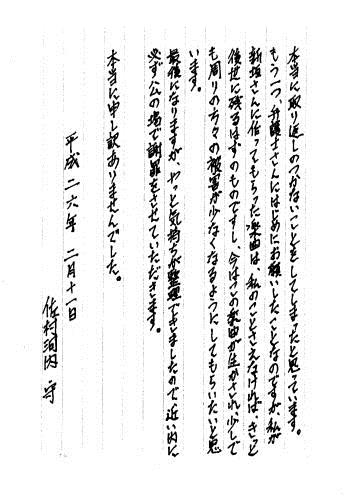 本当に取り返しのつかないことをしてしまったと思っています。
もう一つ、弁護士さんにはじめにお願いしたことなのですが、私が
新垣さんに作ってもらった楽曲は、私のことさえなければ、きっと
後世に残るはずのものですし、今はこの楽曲が生かされ、少しで
も周りの方々の被害が少なくなるようにしてもらいたいと思
います。
最後になりますが、やっと気持ちが整理できましたので、近い内に
必ず公の場で謝罪をさせていただきます。
本当に申し訳ありませんでした。
平成二六年 二月十一日
佐村河内 守